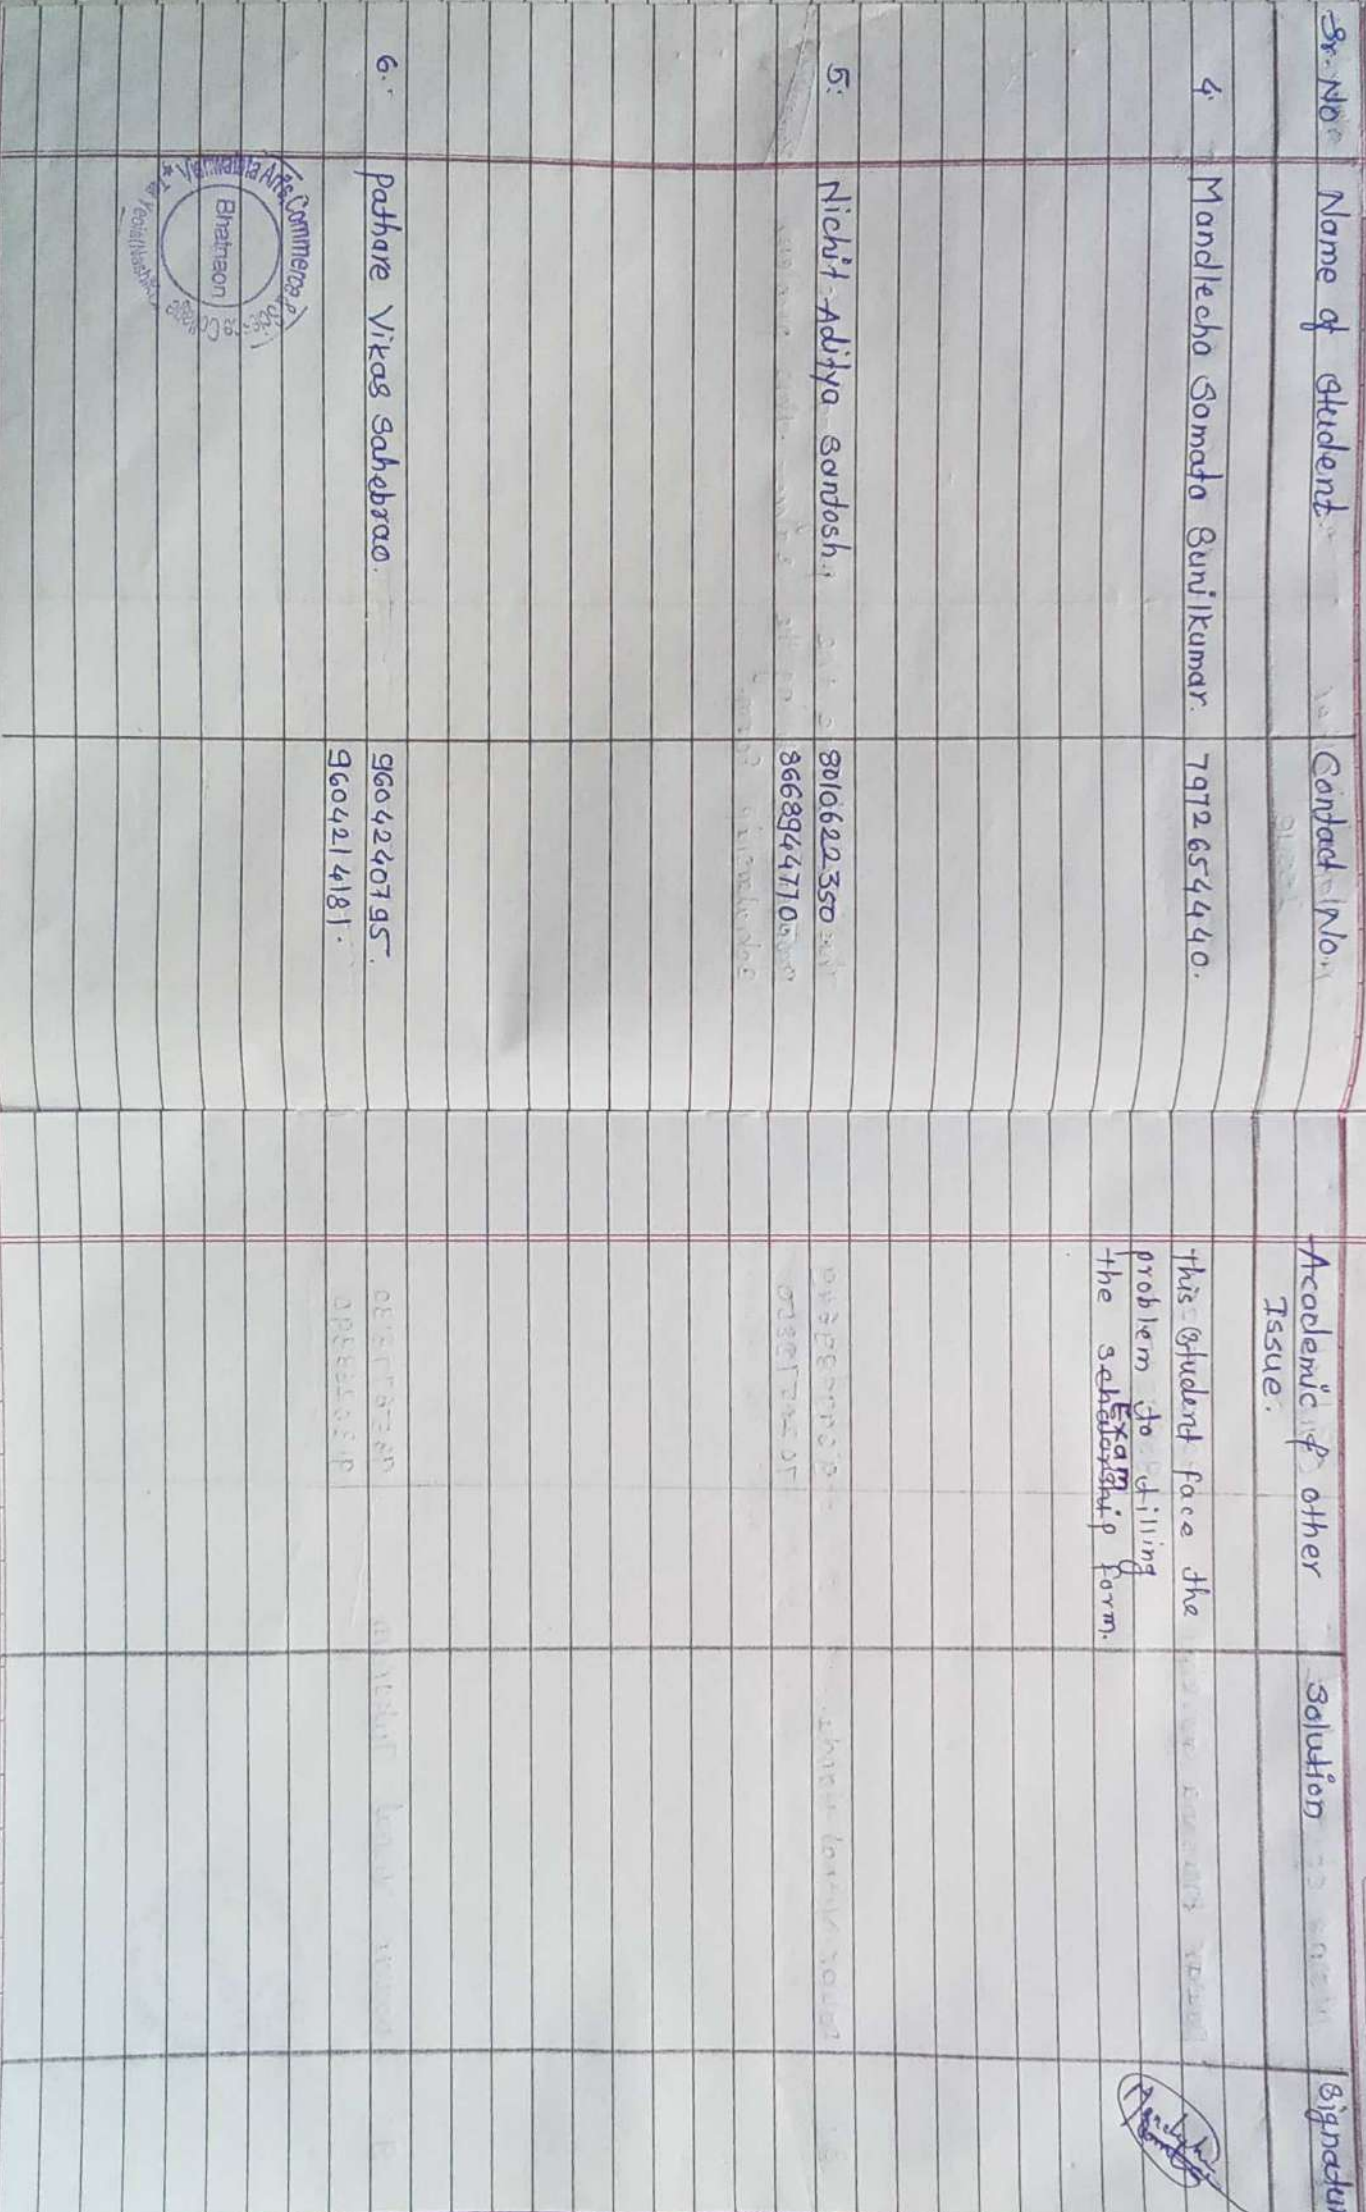 Sr. No Name of Student Contact No. Academic & other Solution Signatur
Issue.
4. Mandlecha Somata Sunilkumar. 7972654440. this student face the
problem to filling
Exam
the scholarship form.
5. Nichit Aditya Santosh. 8010622350
8668944770
6. Pathare Vikas Sahebrao. 9604240795.
9604214181.
Arts, Commerce
Bhatgaon